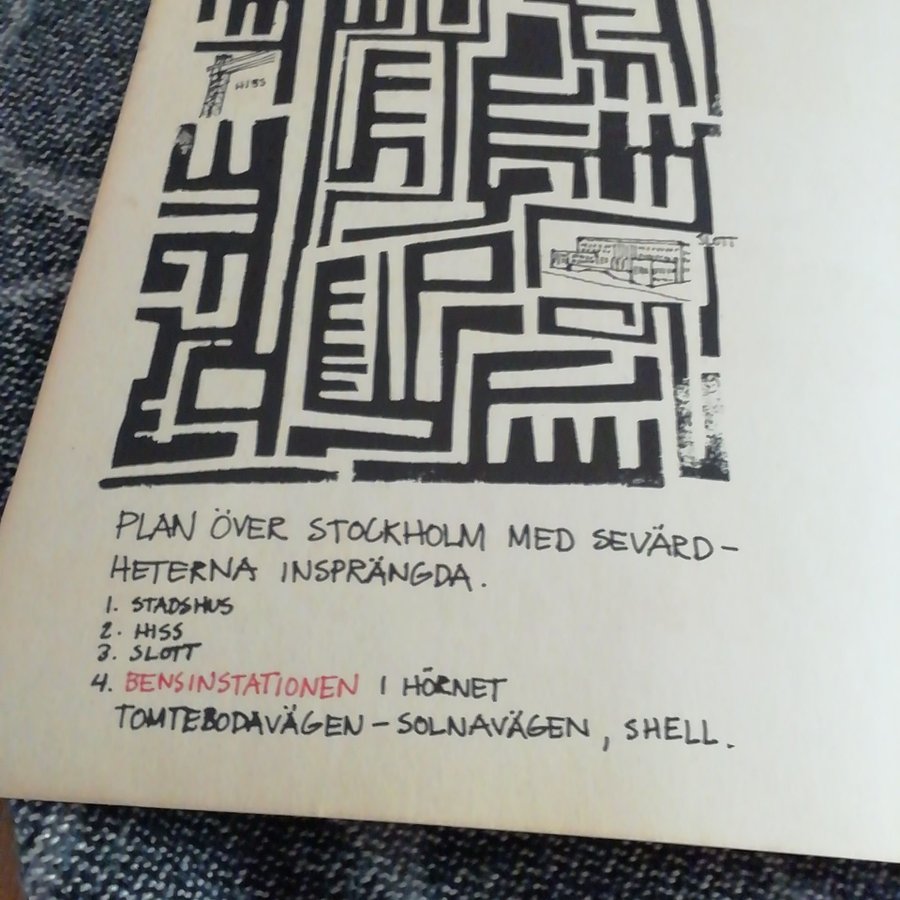 HISS
SLOTT
PLAN ÖVER STOCKHOLM MED SEVÄRD-
HETERNA INSPRÄNGDA.
1. STADSHUS
2. HISS
3. SLOTT
4. BENSINSTATIONEN I HÖRNET
TOMTEBODAVÄGEN - SOLNAVÄGEN, SHELL.